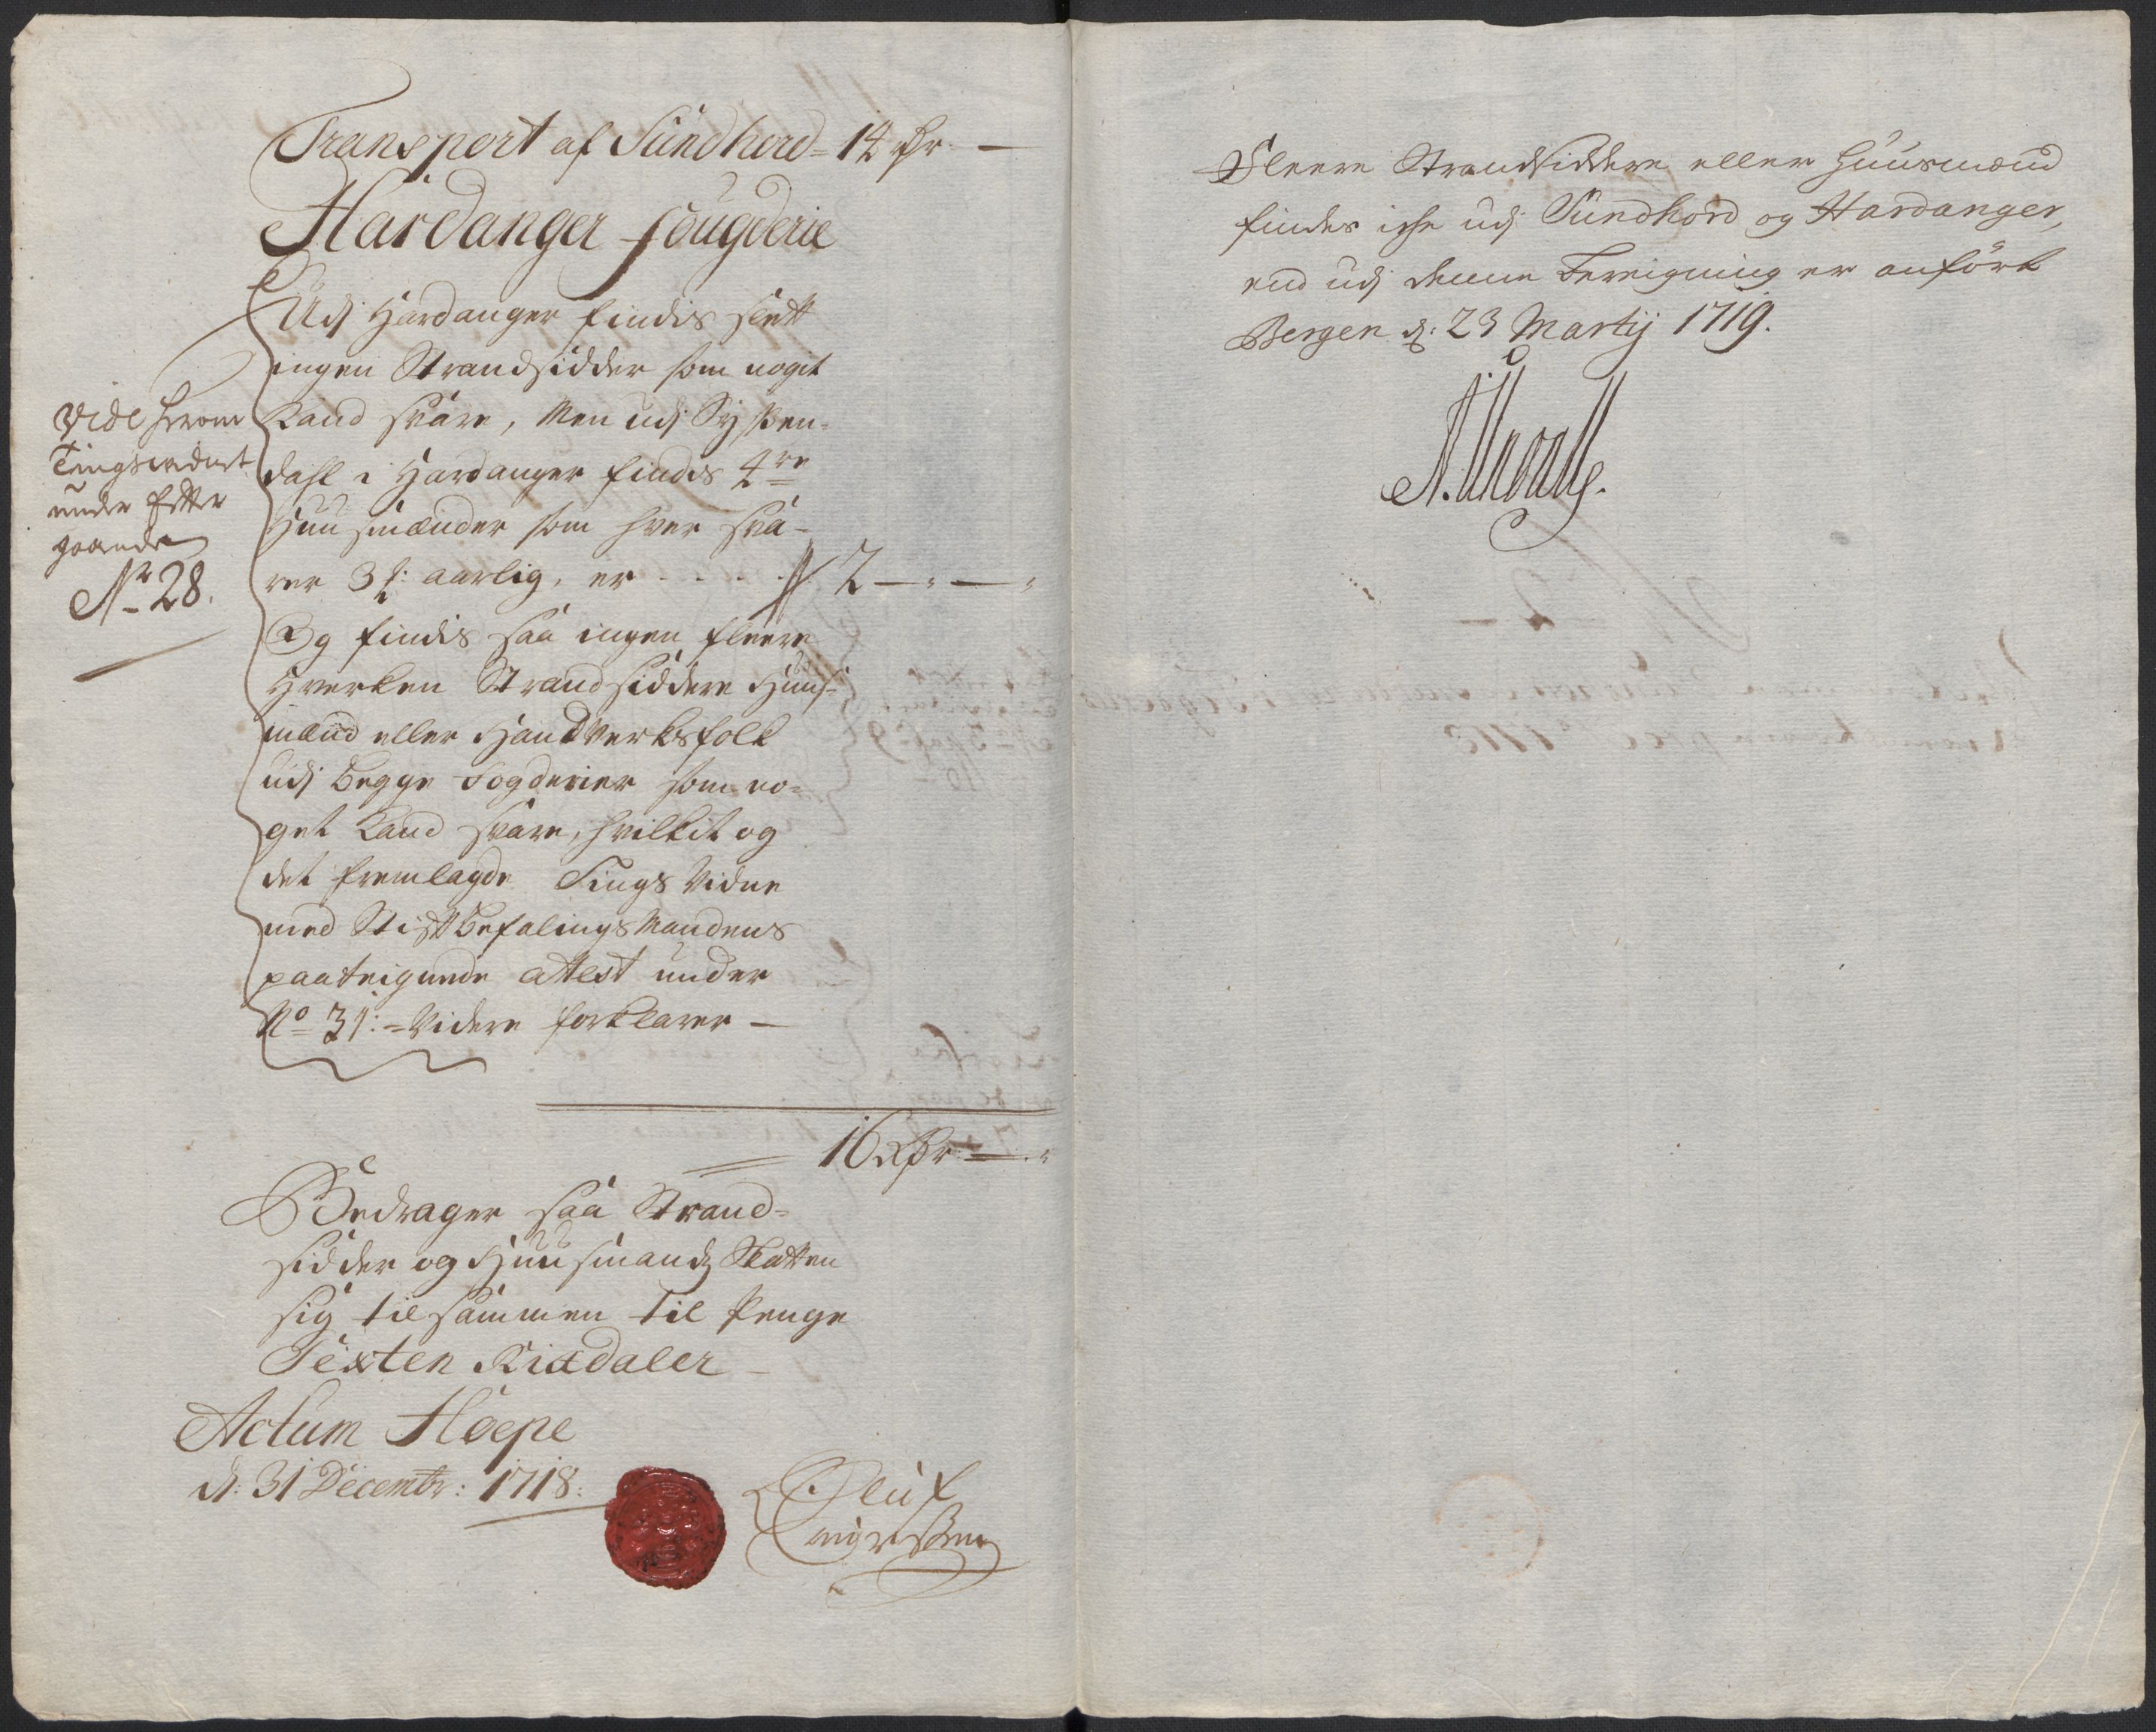 Transport af Sundhord - 14 Rdr —
Hardanger fougderie
Udj Hardanger findis slett
ingen Strandsidder som nogit
Land svare, Men udj Sysßen-
dahl i Hardanger findis 4re
Huusmænder som hver sva-
rer 3 ß: aarlig, er . . . . 2 — „ — „
Og findis saa ingen fleere
Hverken Strandsiddere Huus-
mænd eller Handverksfolk
udj begge Fogderier som no-
get Land svare, hvilkit og
det fremlagde Tings Vidne
med Stiftbefalings Mandens
paateignede attest under
No 31: - Videre forklarer —
vide herom
Tingswidnet
under Efter
gaaende
No 28.
16 Rdr — „
Bedrager saa Strand-
sidder og Huusmands Skatten
sig tilsammen til Penge
Sexten Rixdaler —
Actum Høepe
d: 31 Decembr: 1718:
Oluf
Fleere Strandsiddere eller Huusmænd
findes iche udj Sundhord og Hardanger,
end udj denne Tereigning er anført
Bergen d: 23 Martij 1719.